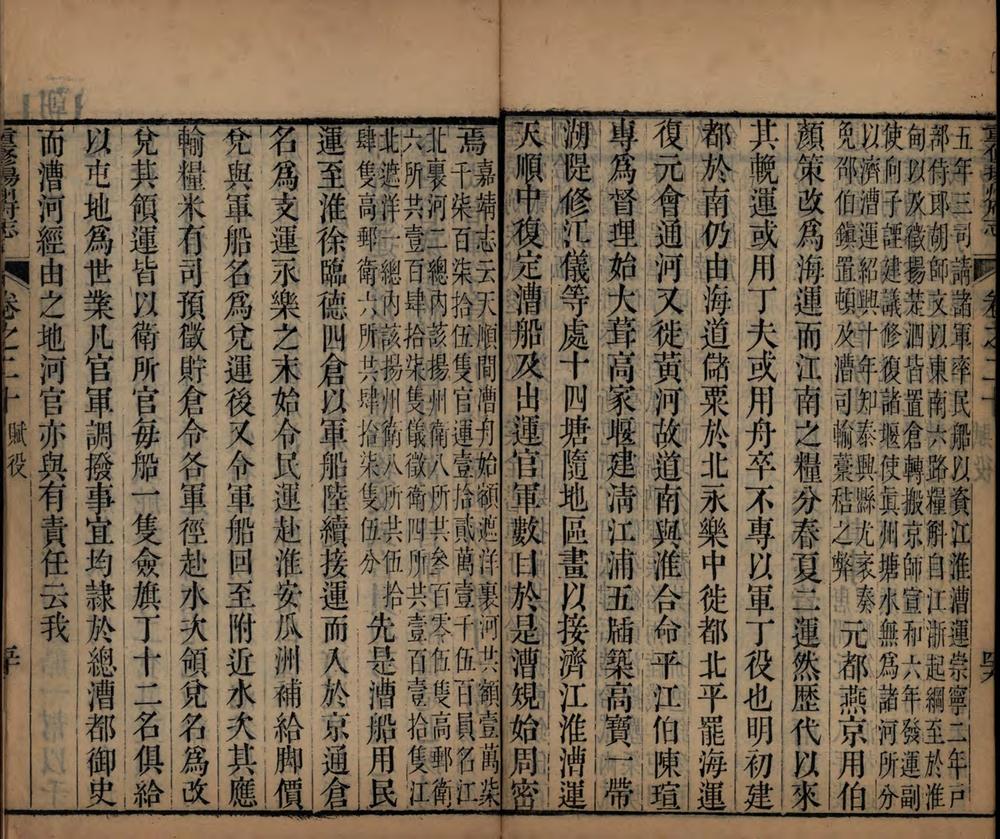 五年三司請諸軍率民船以資江淮漕運崇寧二年戸
部侍郎胡師文以東南六路糧斛自江浙起綱至於淮
甸以及徽揚楚泗皆置倉轉搬京師宣和六年發運副
使向子諲建議修復諸堰使眞州塘水無爲諸河所分
以濟漕運紹興十年知泰興縣尤袤奏
免邵伯鎭置頓及漕司輸藁秸之弊
元都燕京用伯
顏策改爲海運而江南之糧分春夏二運然歷代以來
其輓運或用丁夫或用舟卒不專以軍丁役也明初建
都於南仍由海道儲粟於北永樂中徙都北平罷海運
復元會通河又徙黃河故道南與淮合命平江伯陳瑄
專爲督理始大葺高家堰建淸江浦五牐築高寶一帶
湖隄修江儀等處十四塘隨地區畫以接濟江淮漕運
天順中復定漕船及出運官軍數曰於是漕規始周密
焉
嘉靖志云天順間漕舟始額遮洋裏河共額壹萬柒
千柒百柒拾伍隻官運壹拾貳萬壹千伍百員名江
北裏河二總內該揚州衛八所共叁百零伍隻高郵衛
六所共壹百肆拾柒隻儀徵衛四所共壹百壹拾隻江
北遮洋一總內該揚州衛八所共伍拾
肆隻高郵衛六所共肆拾柒隻伍分
先是漕船用民
運至淮徐臨德四倉以軍船陸續接運而入於京通倉
名爲支運永樂之末始令民運赴淮安瓜洲補給脚價
兌與軍船名爲兌運後又令軍船回至附近水次其應
輸糧米有司預徵貯倉令各軍徑赴水次領兌名爲改
兌其領運皆以衛所官每船一隻僉旗丁十二名俱給
以屯地爲世業凡官軍調撥事宜均隷於總漕都御史
而漕河經由之地河官亦與有責任云我
卷之二十
賦役